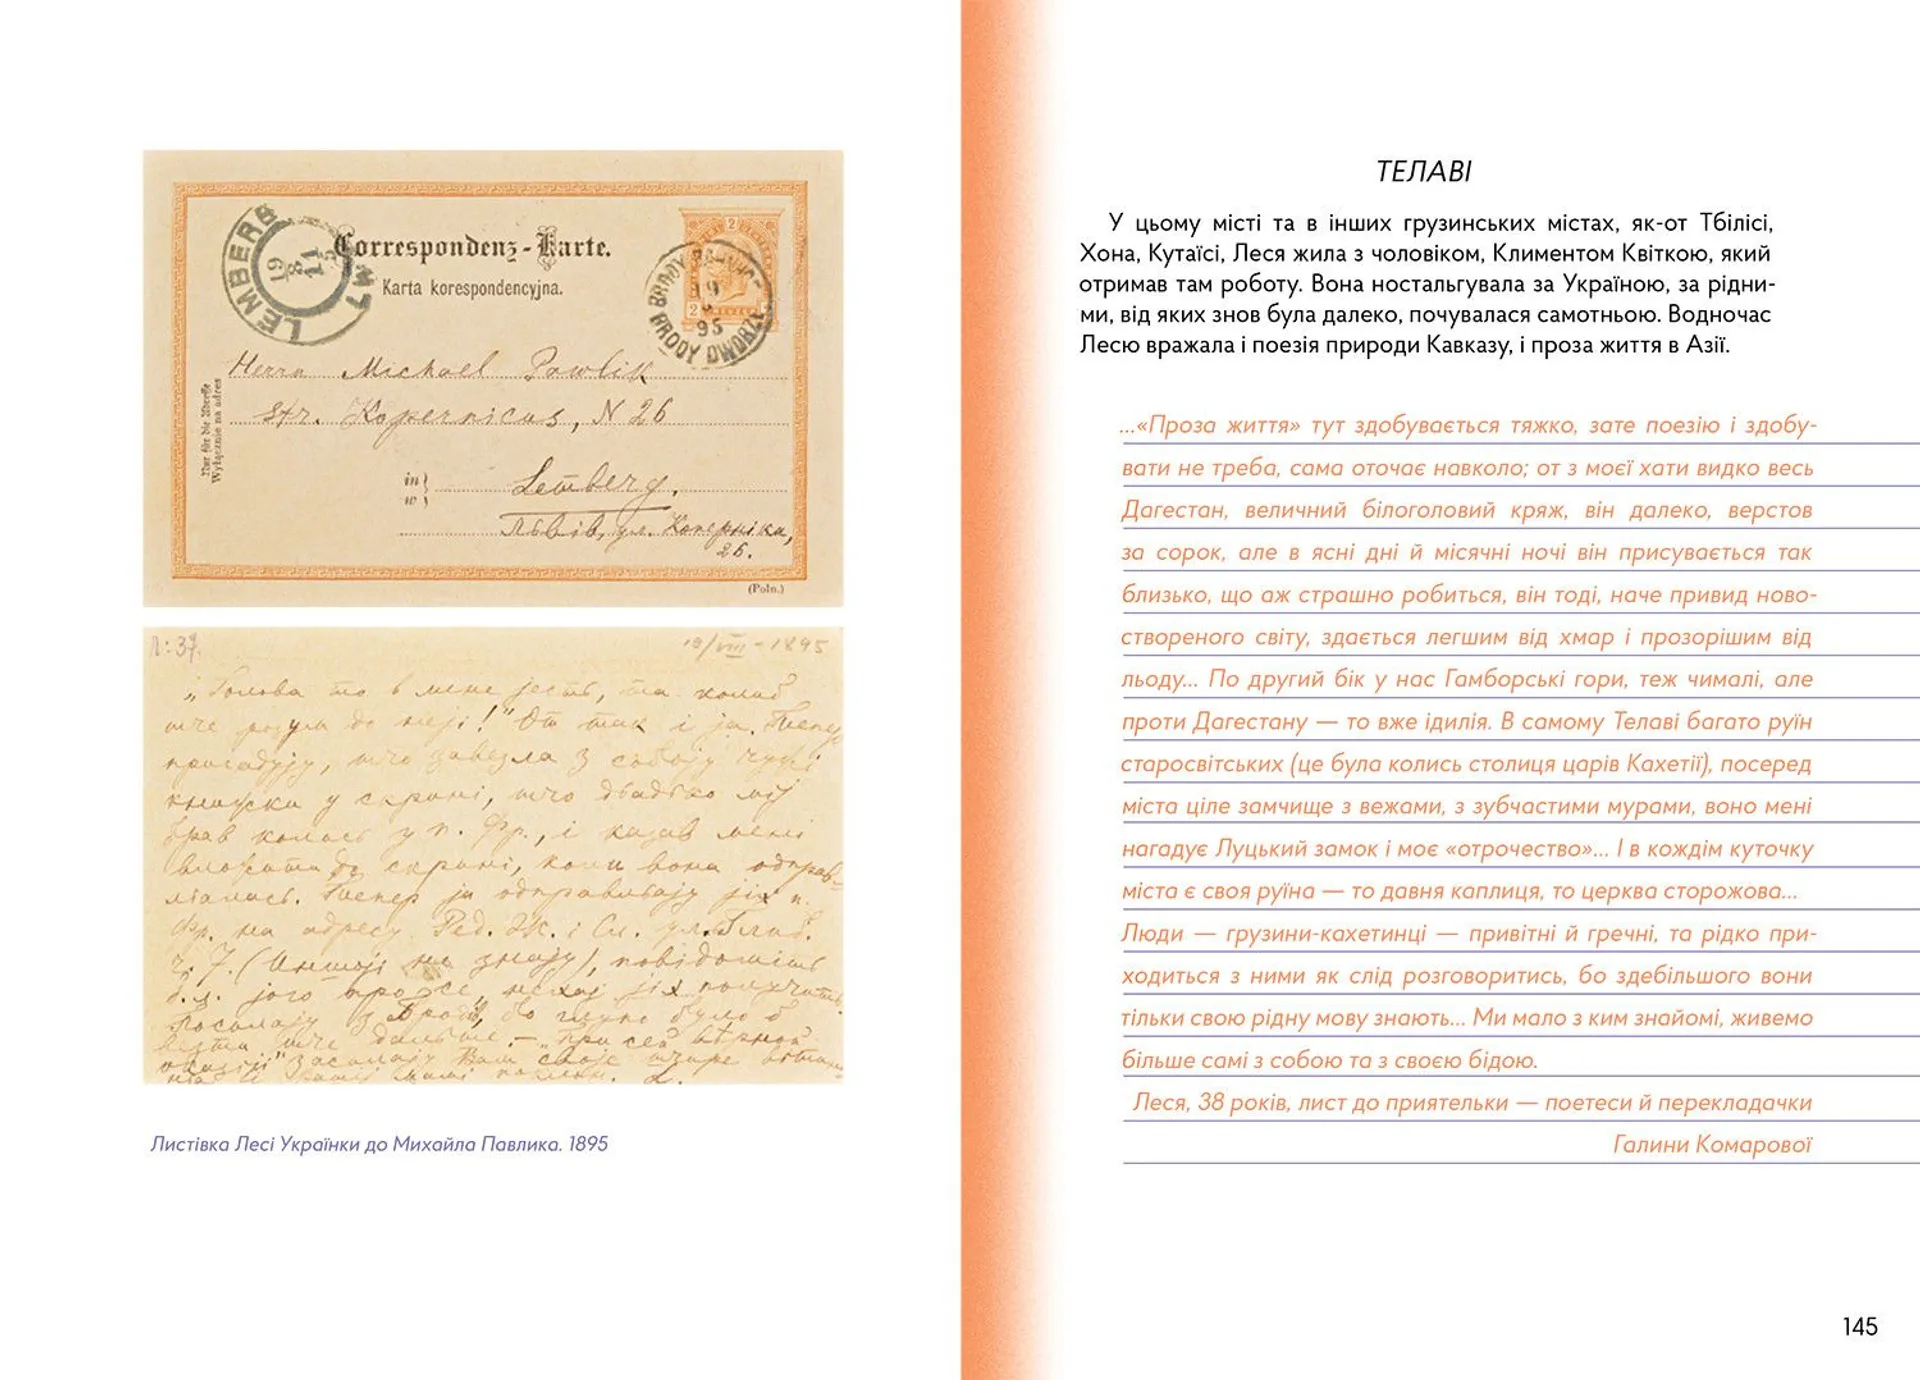 LEMBERG
LW
19
8
11
Correspondenz-Karte.
Karta korespondencyjna.
2
2
BRODY
19
95
BRODY DWORZEC
Herrn Michael Pawlik
str. Kopernicus, N 26
in
w
Lemberg.
Львів, ул. Коперніка,
26.
Nur für die Adresse
Wyłącznie na adres
(Poln.)
Л: 37.
19/VIII - 1895
„Голова то в мене јесть, та колиб
шче розум до нејі!" От так і ја. Тепер
пригадују, шчо завезла з собоју чужі
книжки у скрині, шчо дьадько міј
брав колись у п. Фр., і казав мені
вложити до скрині, коли вона одправ-
льалась. Тепер ја одправльају јіх п.
Фр. на адресу Ред. Ж. і Сл. ул. Глиб.
ч. 7. (Иншојі не знају), повідоміть
б. л. јого про се, нехај јіх получить.
Посилају з Брод, бо глупо було б
везти шче дальше. — „При сеј вірној
оказіјі" засилају Вам своје шчире вітан-
Л.
Листівка Лесі Українки до Михайла Павлика. 1895
ТЕЛАВІ
У цьому місті та в інших грузинських містах, як-от Тбілісі,
Хона, Кутаїсі, Леся жила з чоловіком, Климентом Квіткою, який
отримав там роботу. Вона ностальгувала за Україною, за рідни-
ми, від яких знов була далеко, почувалася самотньою. Водночас
Лесю вражала і поезія природи Кавказу, і проза життя в Азії.
...«Проза життя» тут здобувається тяжко, зате поезію і здобу-
вати не треба, сама оточає навколо; от з моєї хати видко весь
Дагестан, величний білоголовий кряж, він далеко, верстов
за сорок, але в ясні дні й місячні ночі він присувається так
близько, що аж страшно робиться, він тоді, наче привид ново-
створеного світу, здається легшим від хмар і прозорішим від
льоду... По другий бік у нас Гамборські гори, теж чималі, але
проти Дагестану — то вже ідилія. В самому Телаві багато руїн
старосвітських (це була колись столиця царів Кахетії), посеред
міста ціле замчище з вежами, з зубчастими мурами, воно мені
нагадує Луцький замок і моє «отрочество»... І в кождім куточку
міста є своя руїна — то давня каплиця, то церква сторожова...
Люди — грузини-кахетинці — привітні й гречні, та рідко при-
ходиться з ними як слід розговоритись, бо здебільшого вони
тільки свою рідну мову знають... Ми мало з ким знайомі, живемо
більше самі з собою та з своєю бідою.
Леся, 38 років, лист до приятельки — поетеси й перекладачки
Галини Комарової
145